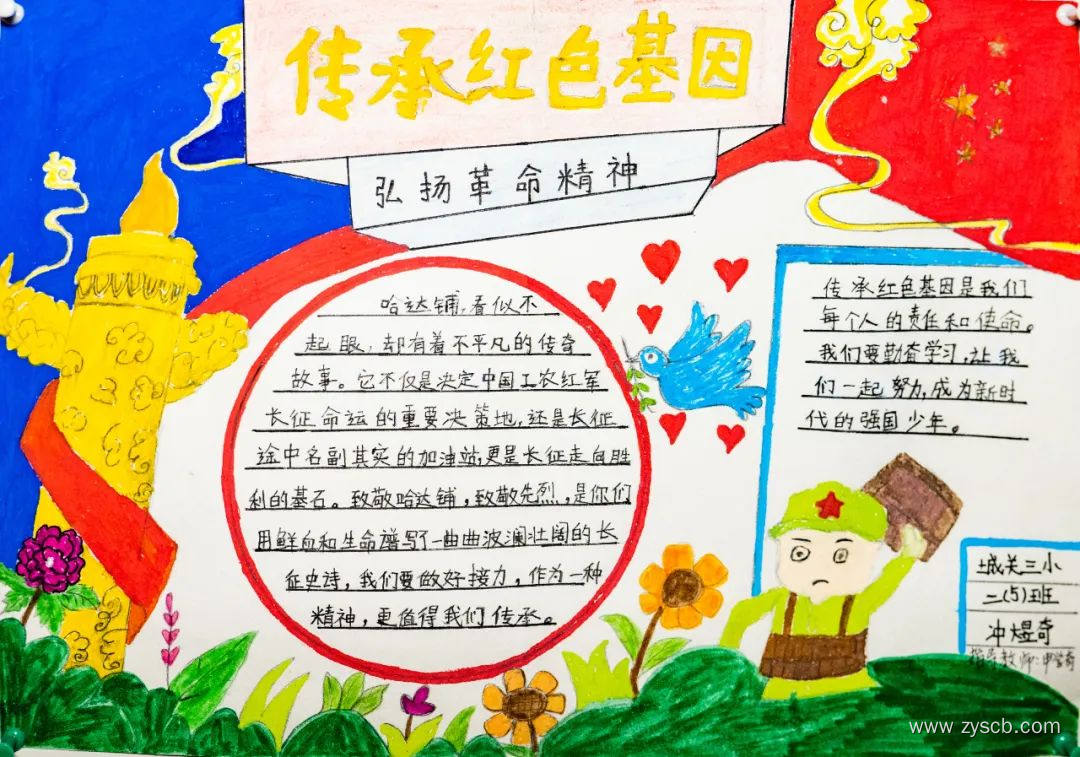 传承红色基因
弘扬革命精神
哈达铺,看似不
起眼,却有着不平凡的传奇
故事。它不仅是决定中国工农红军
长征命运的重要决策地,还是长征
途中名副其实的加油站,更是长征走向胜
利的基石。致敬哈达铺,致敬先烈,是你们
用鲜血和生命谱写了一曲曲波澜壮阔的长
征史诗,我们要做好接力,作为一种
精神,更值得我们传承。
传承红色基因是我们
每个人的责任和使命。
我们要勤奋学习,让我
们一起努力,成为新时
代的强国少年。
城关三小
二(5)班
冲煜奇
指导教师:
www.zyscb.com